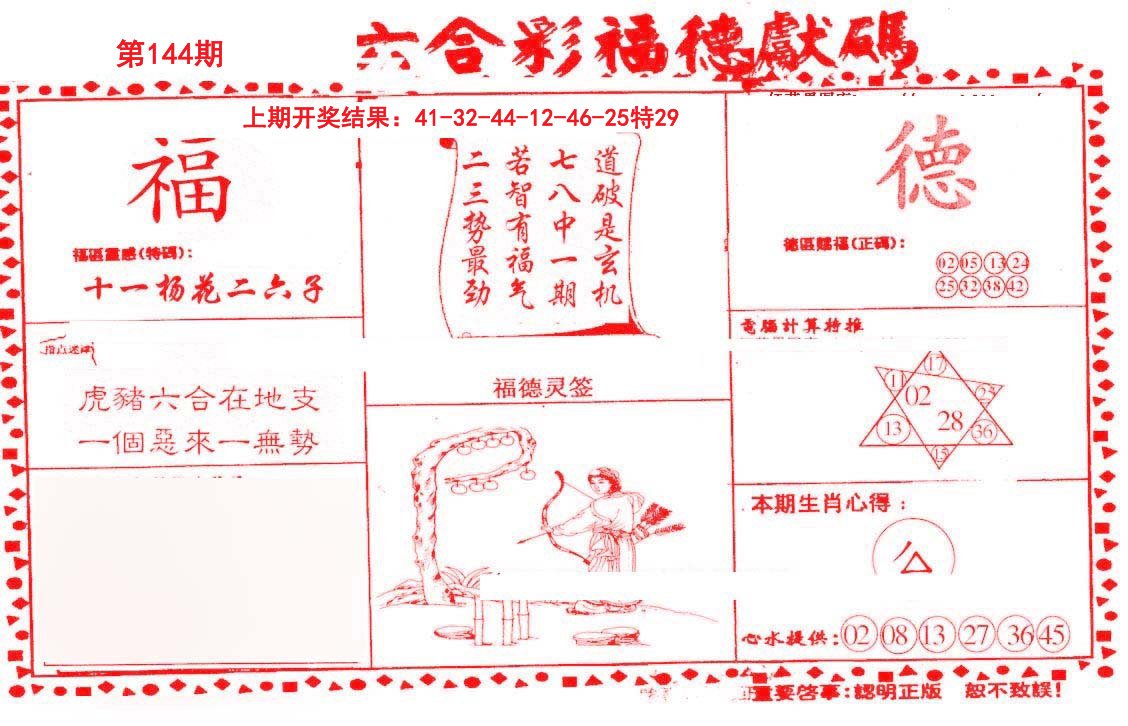 第144期
六合彩福德獻碼
上期开奖结果：41-32-44-12-46-25特29
福
福區靈感(特碼)：
十一杨花二六子
道破是玄机
七八中一期
若智有福气
二三势最劲
德
德區賜福(正碼)：
02 05 13 24
25 32 38 42
指点迷津
虎豬六合在地支
一個惡來一無勢
福德灵签
電腦計算特推
17
11 02 25
13 28 36
15
本期生肖心得：
心水提供：02 08 13 27 36 45
重要啓事：認明正版 恕不致誤！